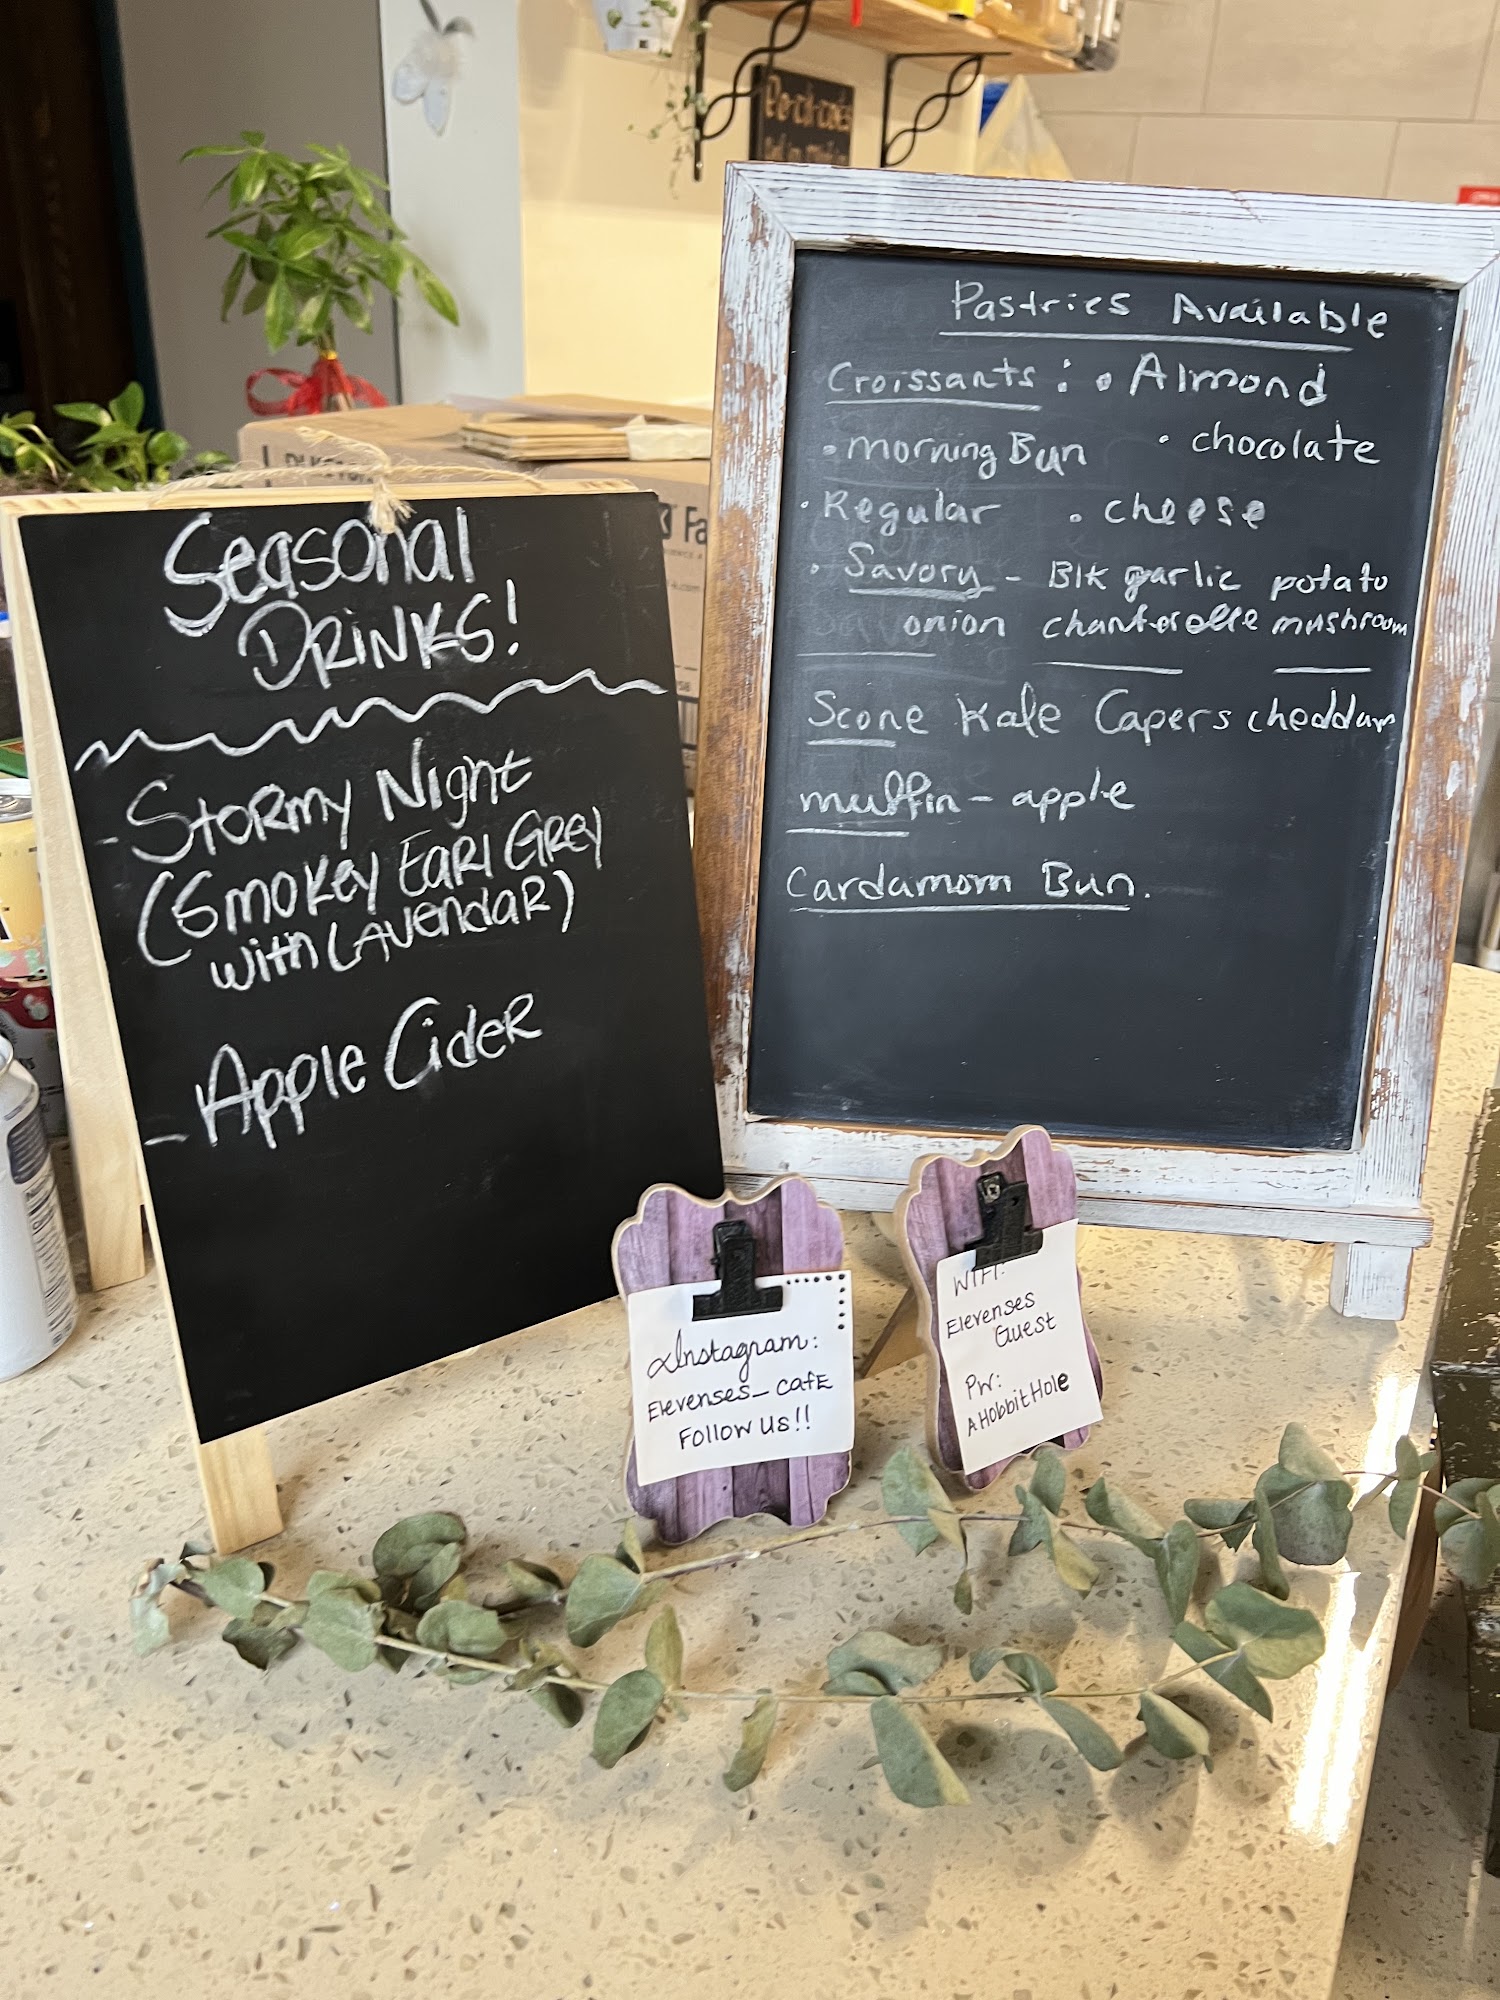 Seasonal
DRINKS!
- Stormy Night
(Smokey Earl Grey
with Lavendar)
- Apple Cider
Pastries Available
Croissants: • Almond
• morning Bun • chocolate
• Regular • cheese
• Savory - Blk garlic potato
onion chanterelle mushroom
Scone Kale Capers cheddar
muffin - apple
Cardamom Bun.
Instagram:
Elevenses_cafe
Follow us!!
WIFI:
Elevenses
Guest
PW:
AHobbitHole
Fa